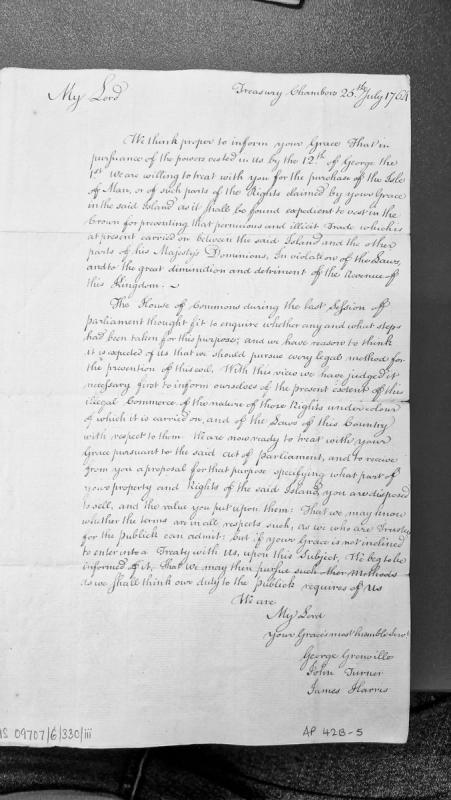 My Lord
Treasury Chambers 25.th July 1764
We think proper to inform your Grace That in
pursuance of the powers vested in us by the 12.th of George the
1st We are willing to treat with you for the purchase of the Isle
of Man, or of such parts of the Rights claimed by your Grace
in the said Island as it shall be found expedient to vest in the
Crown for preventing that pernicious and illicit Trade which is
at present carried on between the said Island and the other
parts of his Majesty's Dominions, In violation of the Laws,
and to the great diminution and detriment of the Revenue of
this Kingdom.
The House of Commons during the last Session of
parliament thought fit to enquire whether any and what steps
had been taken for this purpose; and we have reason to think
it is expected of us that we should pursue every legal method for
the prevention of this evil. With this view we have judged it
necessary first to inform ourselves of the present extent of this
illegal Commerce of the nature of those Rights under colour
of which it is carried on, and of the Laws of this Country
with respect to them. We are now ready to treat with your
Grace pursuant to the said act of Parliament, and to receive
from you a proposal for that purpose specifying what part of
your property and Rights of the said Island, you are disposed
to sell, and the value you put upon them: That we may know
whether the terms are in all respects such, as we who are Trustees
for the Publick can admit; but if your Grace is not inclined
to enter into a Treaty with Us, upon this Subject, We beg to be
informed of it, That we may then pursue such other Methods
as we shall think our duty to the publick requires of Us
We are
My Lord
Your Grace's most humble Serv.ts
George Grenville
John Turner
James Harris
MS 09707/6/330/iii
AP 42B-5